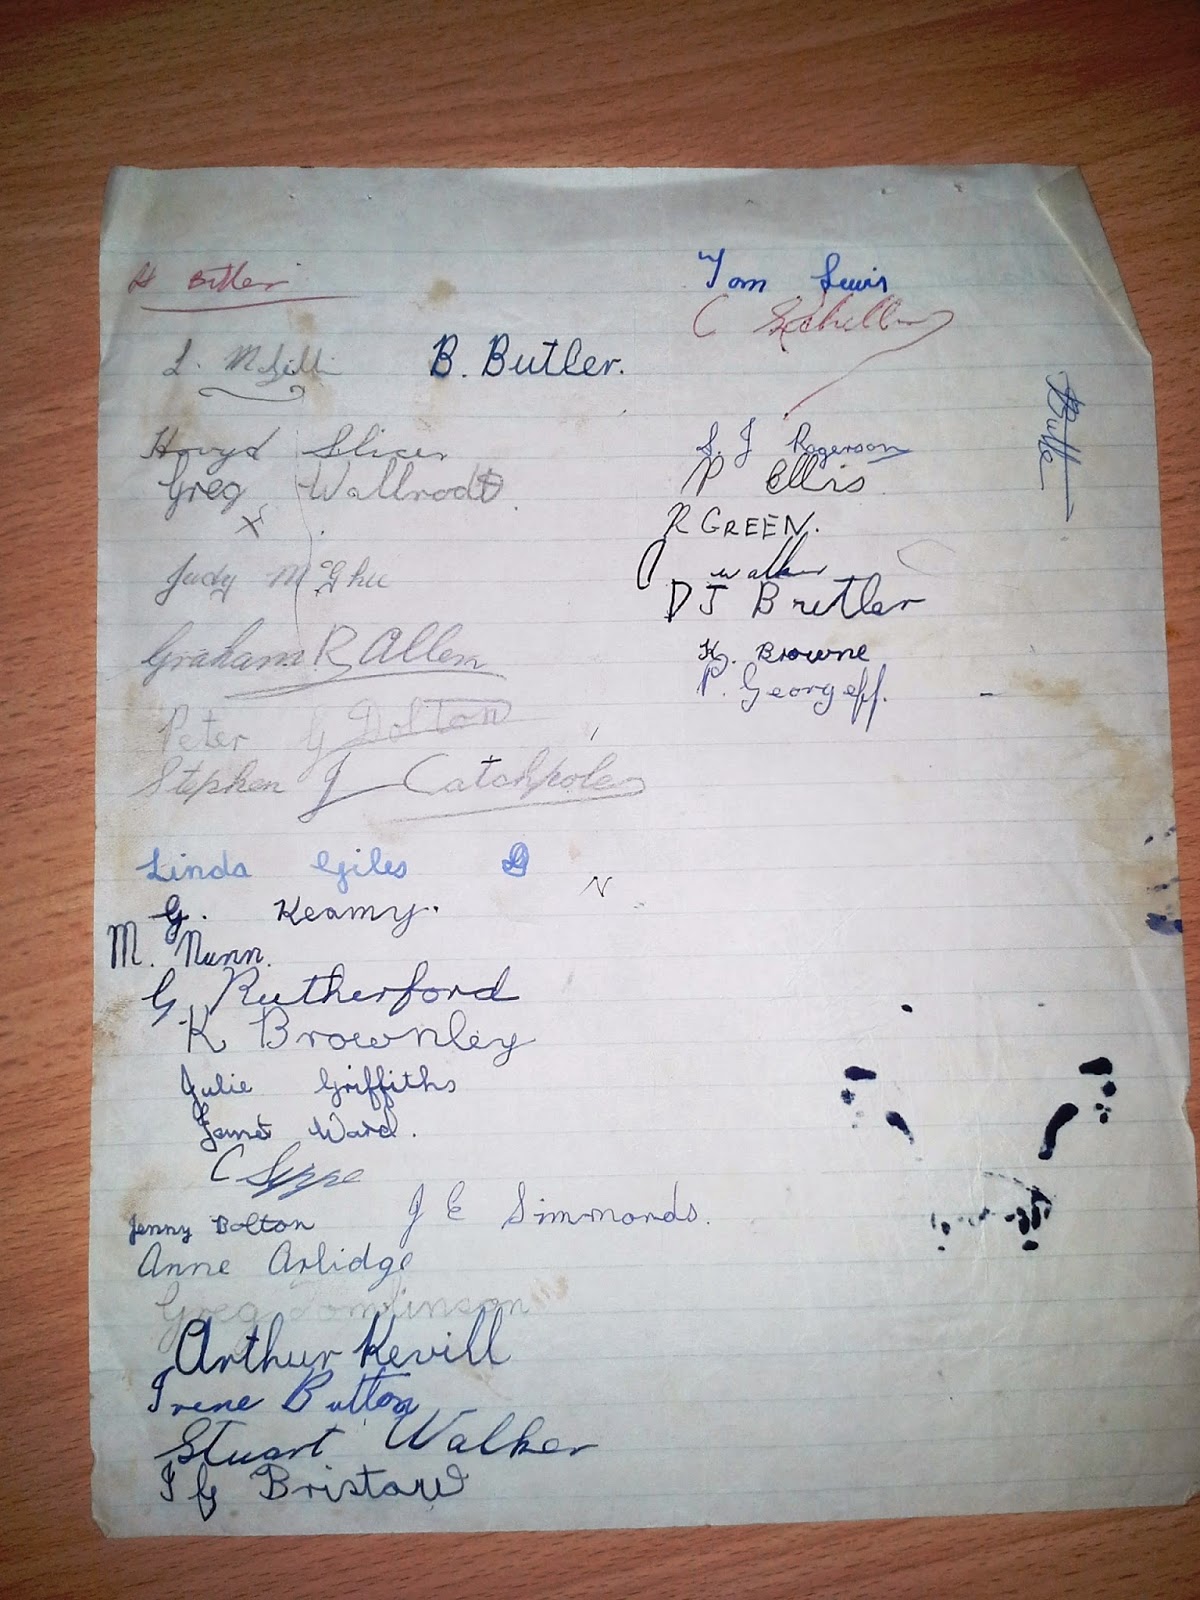 H Butler
Tom Lewis
C Schilling
L.
B. Butler.
Butle
Slicer
Greg Wallrodt
X
S. J Rogerson
P Ellis
R GREEN.
Judy McGhee
Walker
D J Butler
Graham R Allen
K. Browne
P. Georgeff.
Peter G Dolton
Stephen J Catchpole
Linda Giles
N
G. Keamy.
M. Nunn.
G Rutherford
K Brownley
Julie Griffiths
Janet Ward.
C Seppe
Jenny Bolton
J E Simmonds.
Anne Arlidge
Greg Tomlinson
Arthur Kevill
Irene Button
Stuart Walker
I G Bristow